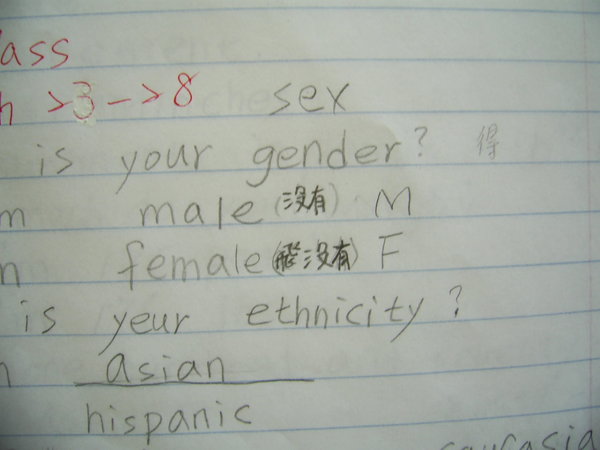 ass
h >3-->8 sex
is your gender? 得
m male (没有) M
n female (没有) F
is yeur ethnicity?
n asian
hispanic